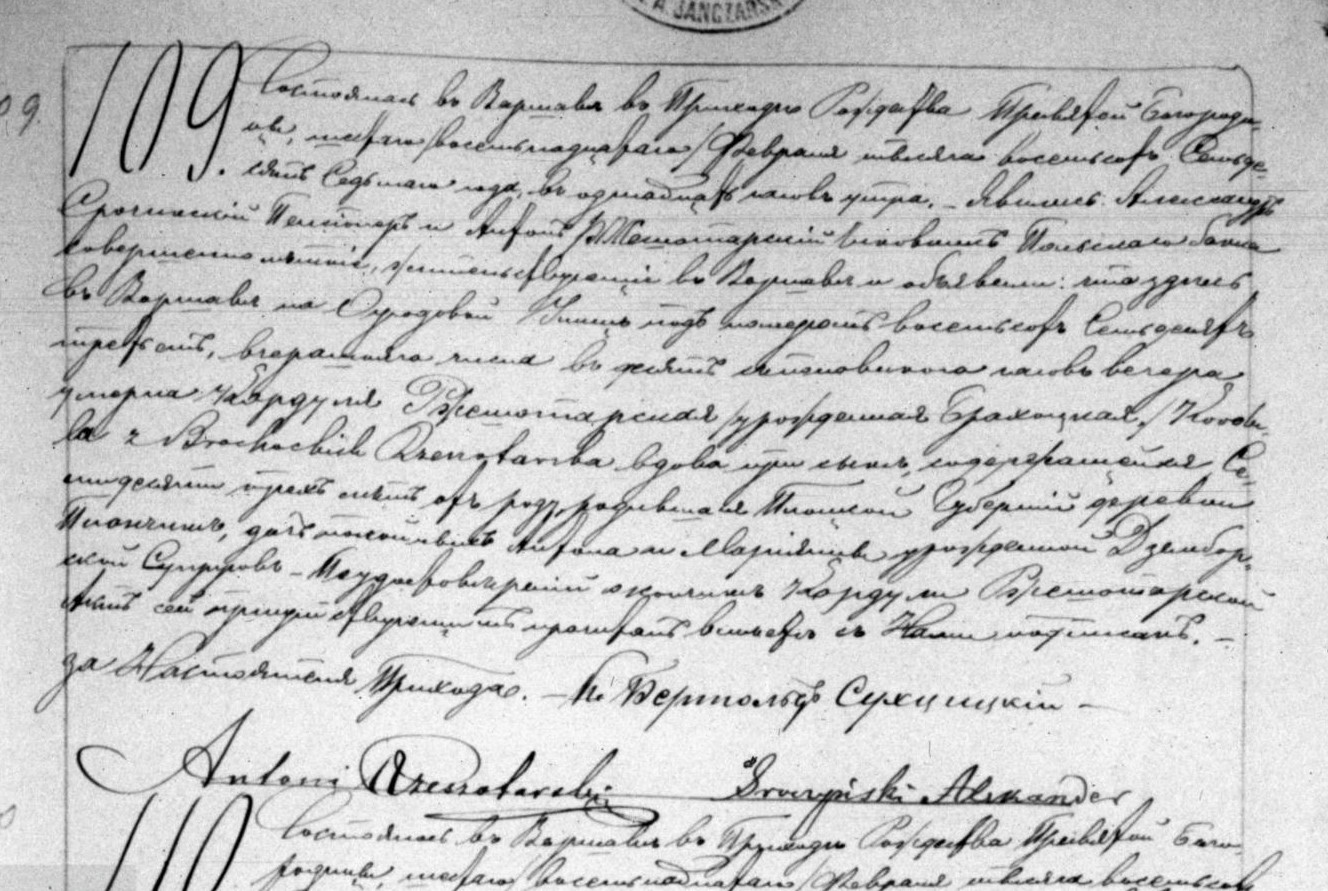 A. JANCZARSK
109.
Состоялось въ Варшавѣ въ Приходѣ Рождества Пресвятой Богороди-
цы, шестаго /восемьнадцатаго/ Февраля тысяча восемьсотъ Семьде-
сятъ Седьмаго года, въ одинадцать часовъ утра. – Явились: Александръ
Срочинскій Пенсіонеръ и Антонъ Ржешотарскій Чиновникъ Польскаго банка
совершеннолѣтніе, жительствующіе въ Варшавѣ и объявили: что здѣсь
въ Варшавѣ на Огродовой Улицѣ подъ номеромъ восемьсотъ Семьдесятъ
третьемъ, вчерашняго числа въ съ половиною часовъ вечера
умерла Кордуля Ржешотарская урожденная Брахоцкая, /Kordu-
la z Brochockich Rzeszotarska вдова при сынѣ, содержащаяся Се-
мидесяти трехъ лѣтъ отъ роду, родившаяся Плоцкой Губерніи деревни
дочь покойныхъ Антона и Маріянны урожденной Дзембор-
ской Супруговъ – По удостовѣреніи о кончинѣ Кордули Ржешотарской
Актъ сей присутствующимъ прочитанъ съ Нами подписанъ. –
за Настоятеля Прихода. – Кс. Бертольдъ Сухцицкій –
Antoni Rzeszotarski Sroczyński Alexander
110
Состоялось въ Варшавѣ въ Приходѣ Рождества Пресвятой Бого-
родицы, шестаго /восемьнадцатаго/ Февраля тысяча восемьсотъ